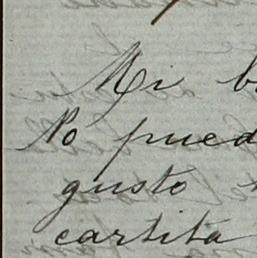 Mi b
No pued
gusto
cartita